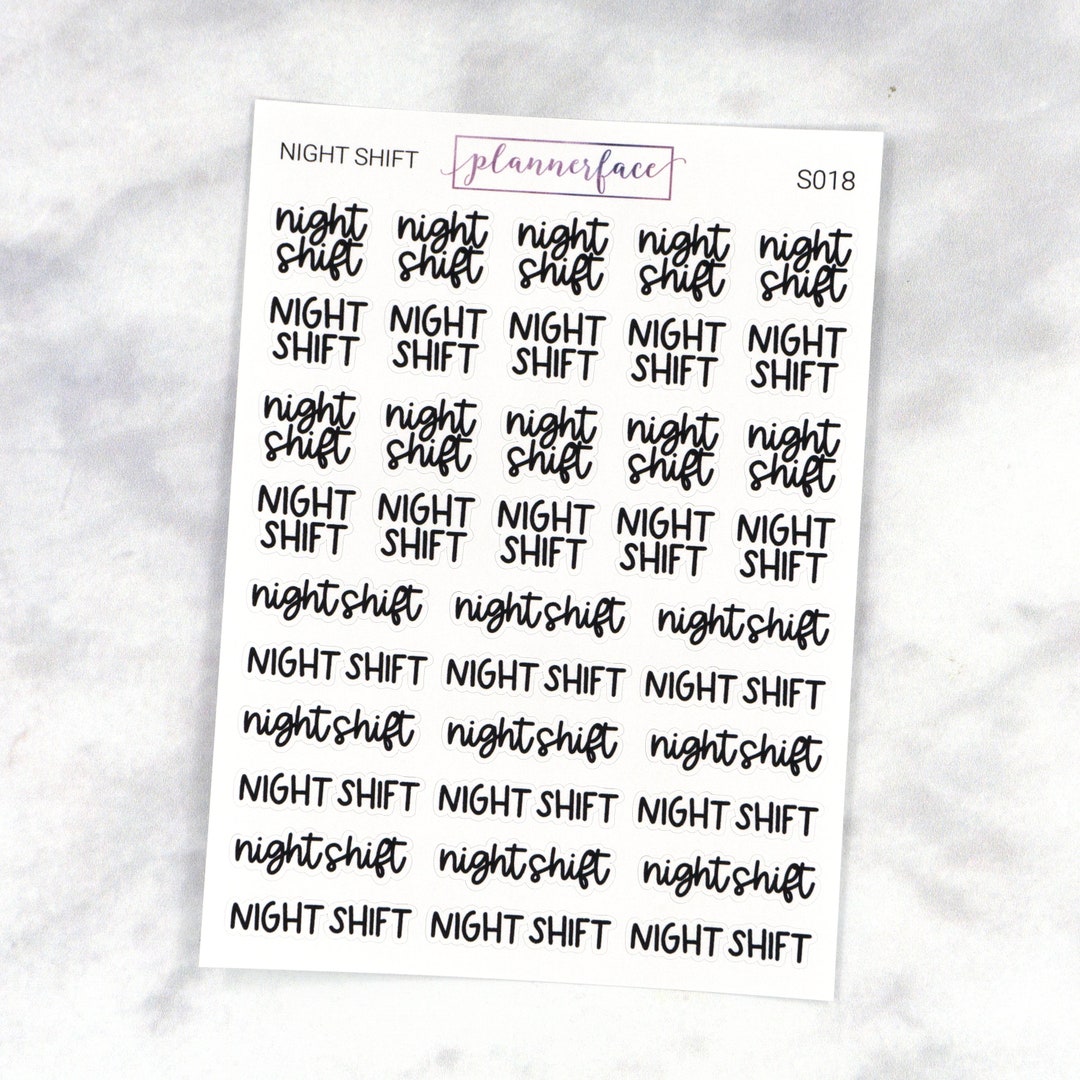 NIGHT SHIFT plannerface S018
night night night night night
shift shift shift shift shift
NIGHT NIGHT NIGHT NIGHT NIGHT
SHIFT SHIFT SHIFT SHIFT SHIFT
night night night night night
shift shift shift shift shift
NIGHT NIGHT NIGHT NIGHT NIGHT
SHIFT SHIFT SHIFT SHIFT SHIFT
night shift night shift night shift
NIGHT SHIFT NIGHT SHIFT NIGHT SHIFT
night shift night shift night shift
NIGHT SHIFT NIGHT SHIFT NIGHT SHIFT
night shift night shift night shift
NIGHT SHIFT NIGHT SHIFT NIGHT SHIFT